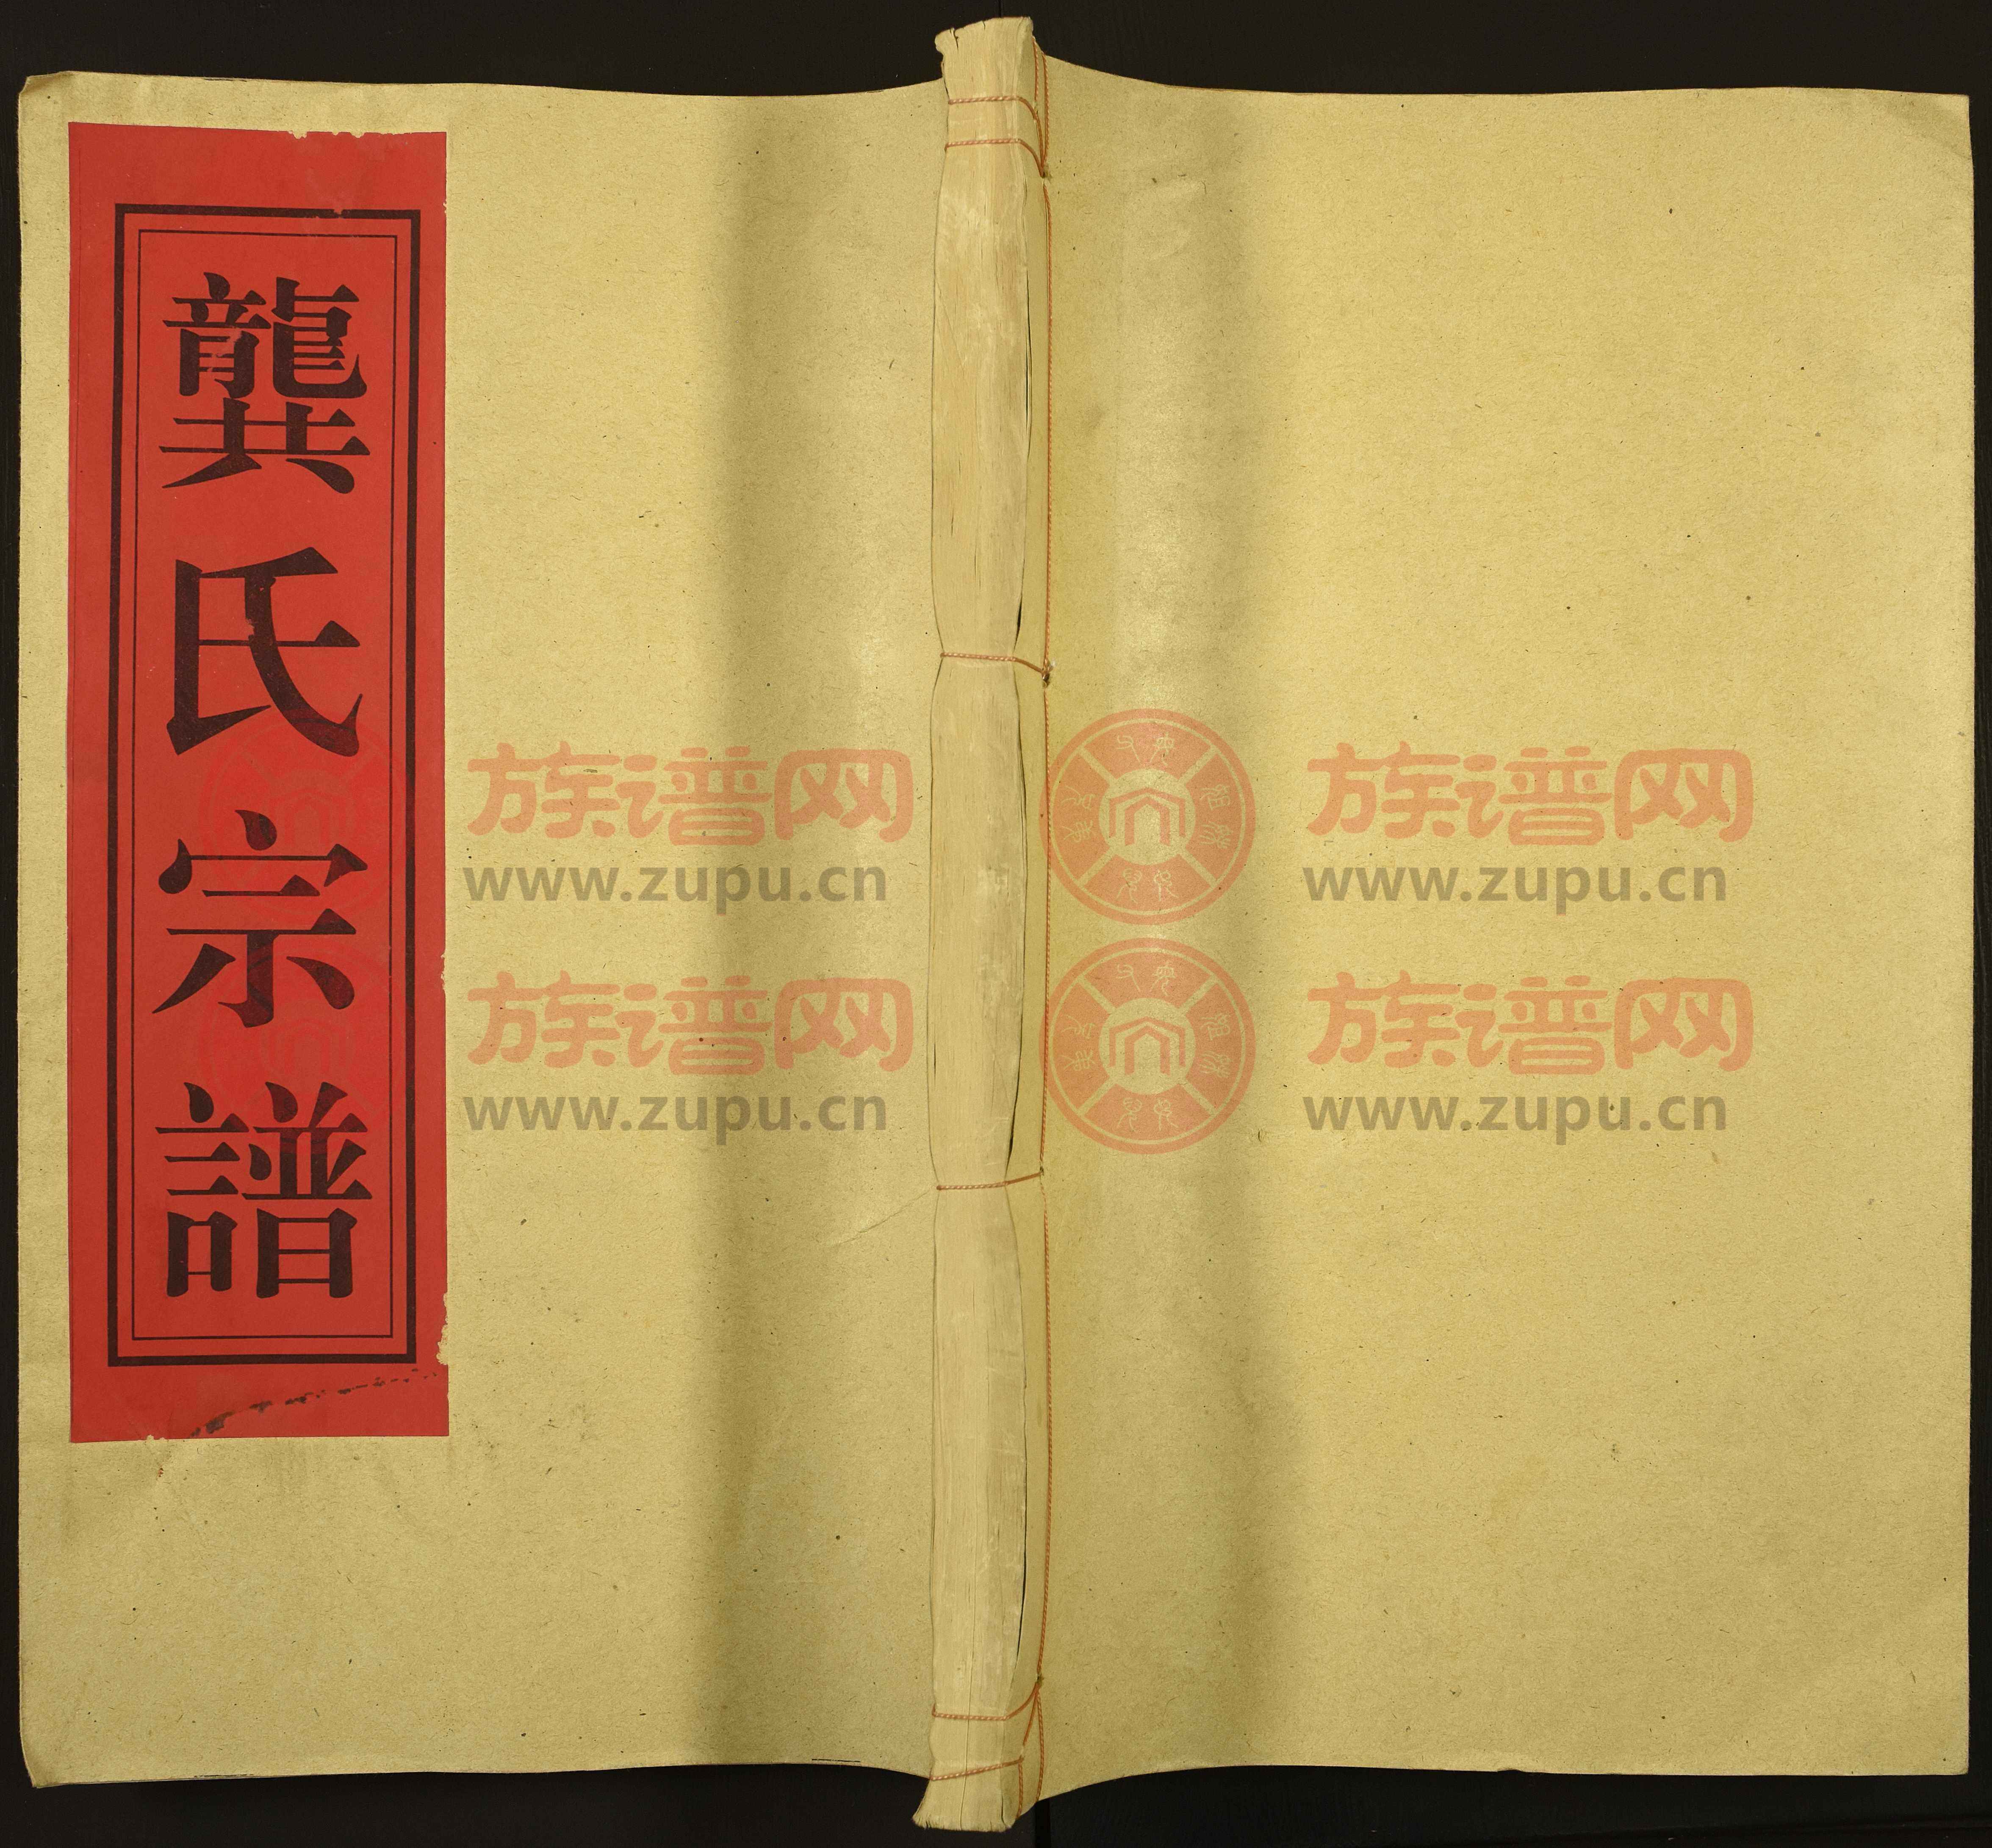 龔氏宗譜
族谱网
www.zupu.cn
族谱网
www.zupu.cn
族谱网
www.zupu.cn
族谱网
www.zupu.cn